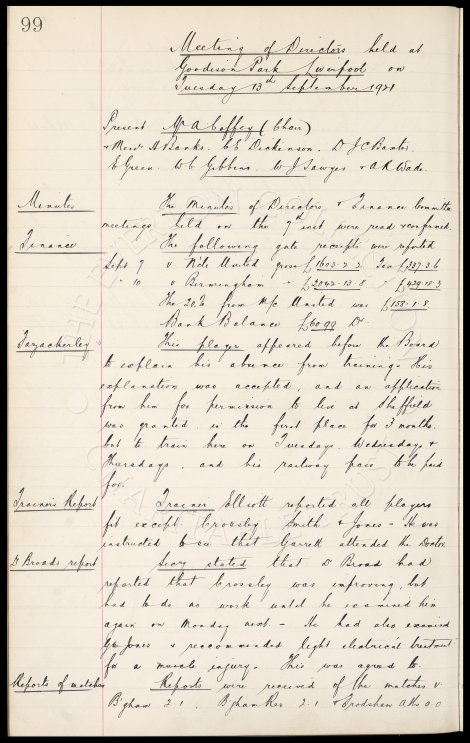 99
Meeting of Directors held at
Goodison Park Liverpool on
Tuesday 13th September 1921
Present Mr A Coffey (Chair)
& Messrs H Banks. C E Dickinson. Dr J C Baxter.
E Green. W C Gibbins. W J Sawyer & A R Wade.
Minutes
The Minutes of Directors & Finance Committee
meetings held on the 7th inst were read & confirmed.
Finance
The following gate receipts were reported
Sept 7 v N'cle United gross £1603.2.2. Tax £337.3.6
" 10 v Birmingham " £2042.13.8 " £429.18.3
The 20% from M/c United was £158.1.8
Bank Balance Dr
Fazackerley
This player appeared before the Board
to explain his absence from training. His
explanation was accepted, and an application
from him for permission to live at Sheffield
was granted in the first place for 3 months.
but to train here on Tuesdays. Wednesdays &
Thursdays. and his railway fares to be paid
for.
Trainers Report
Trainer Elliott reported all players
fit except Crossley Smith & Jones - He was
instructed to see that Garrett attended the Doctor.
Dr Broads report
Secy stated that Dr Broad had
reported that Crossley was improving, but
had to do no work until he examined him
again on Monday next. - He had also examined
Jones & recommended light electrical treatment
for a muscle injury. This was agreed to.
Reports of matches
Reports were received of the matches v.
B'gham 2.1. B'gham Res 2.1 & Frodsham 0.0